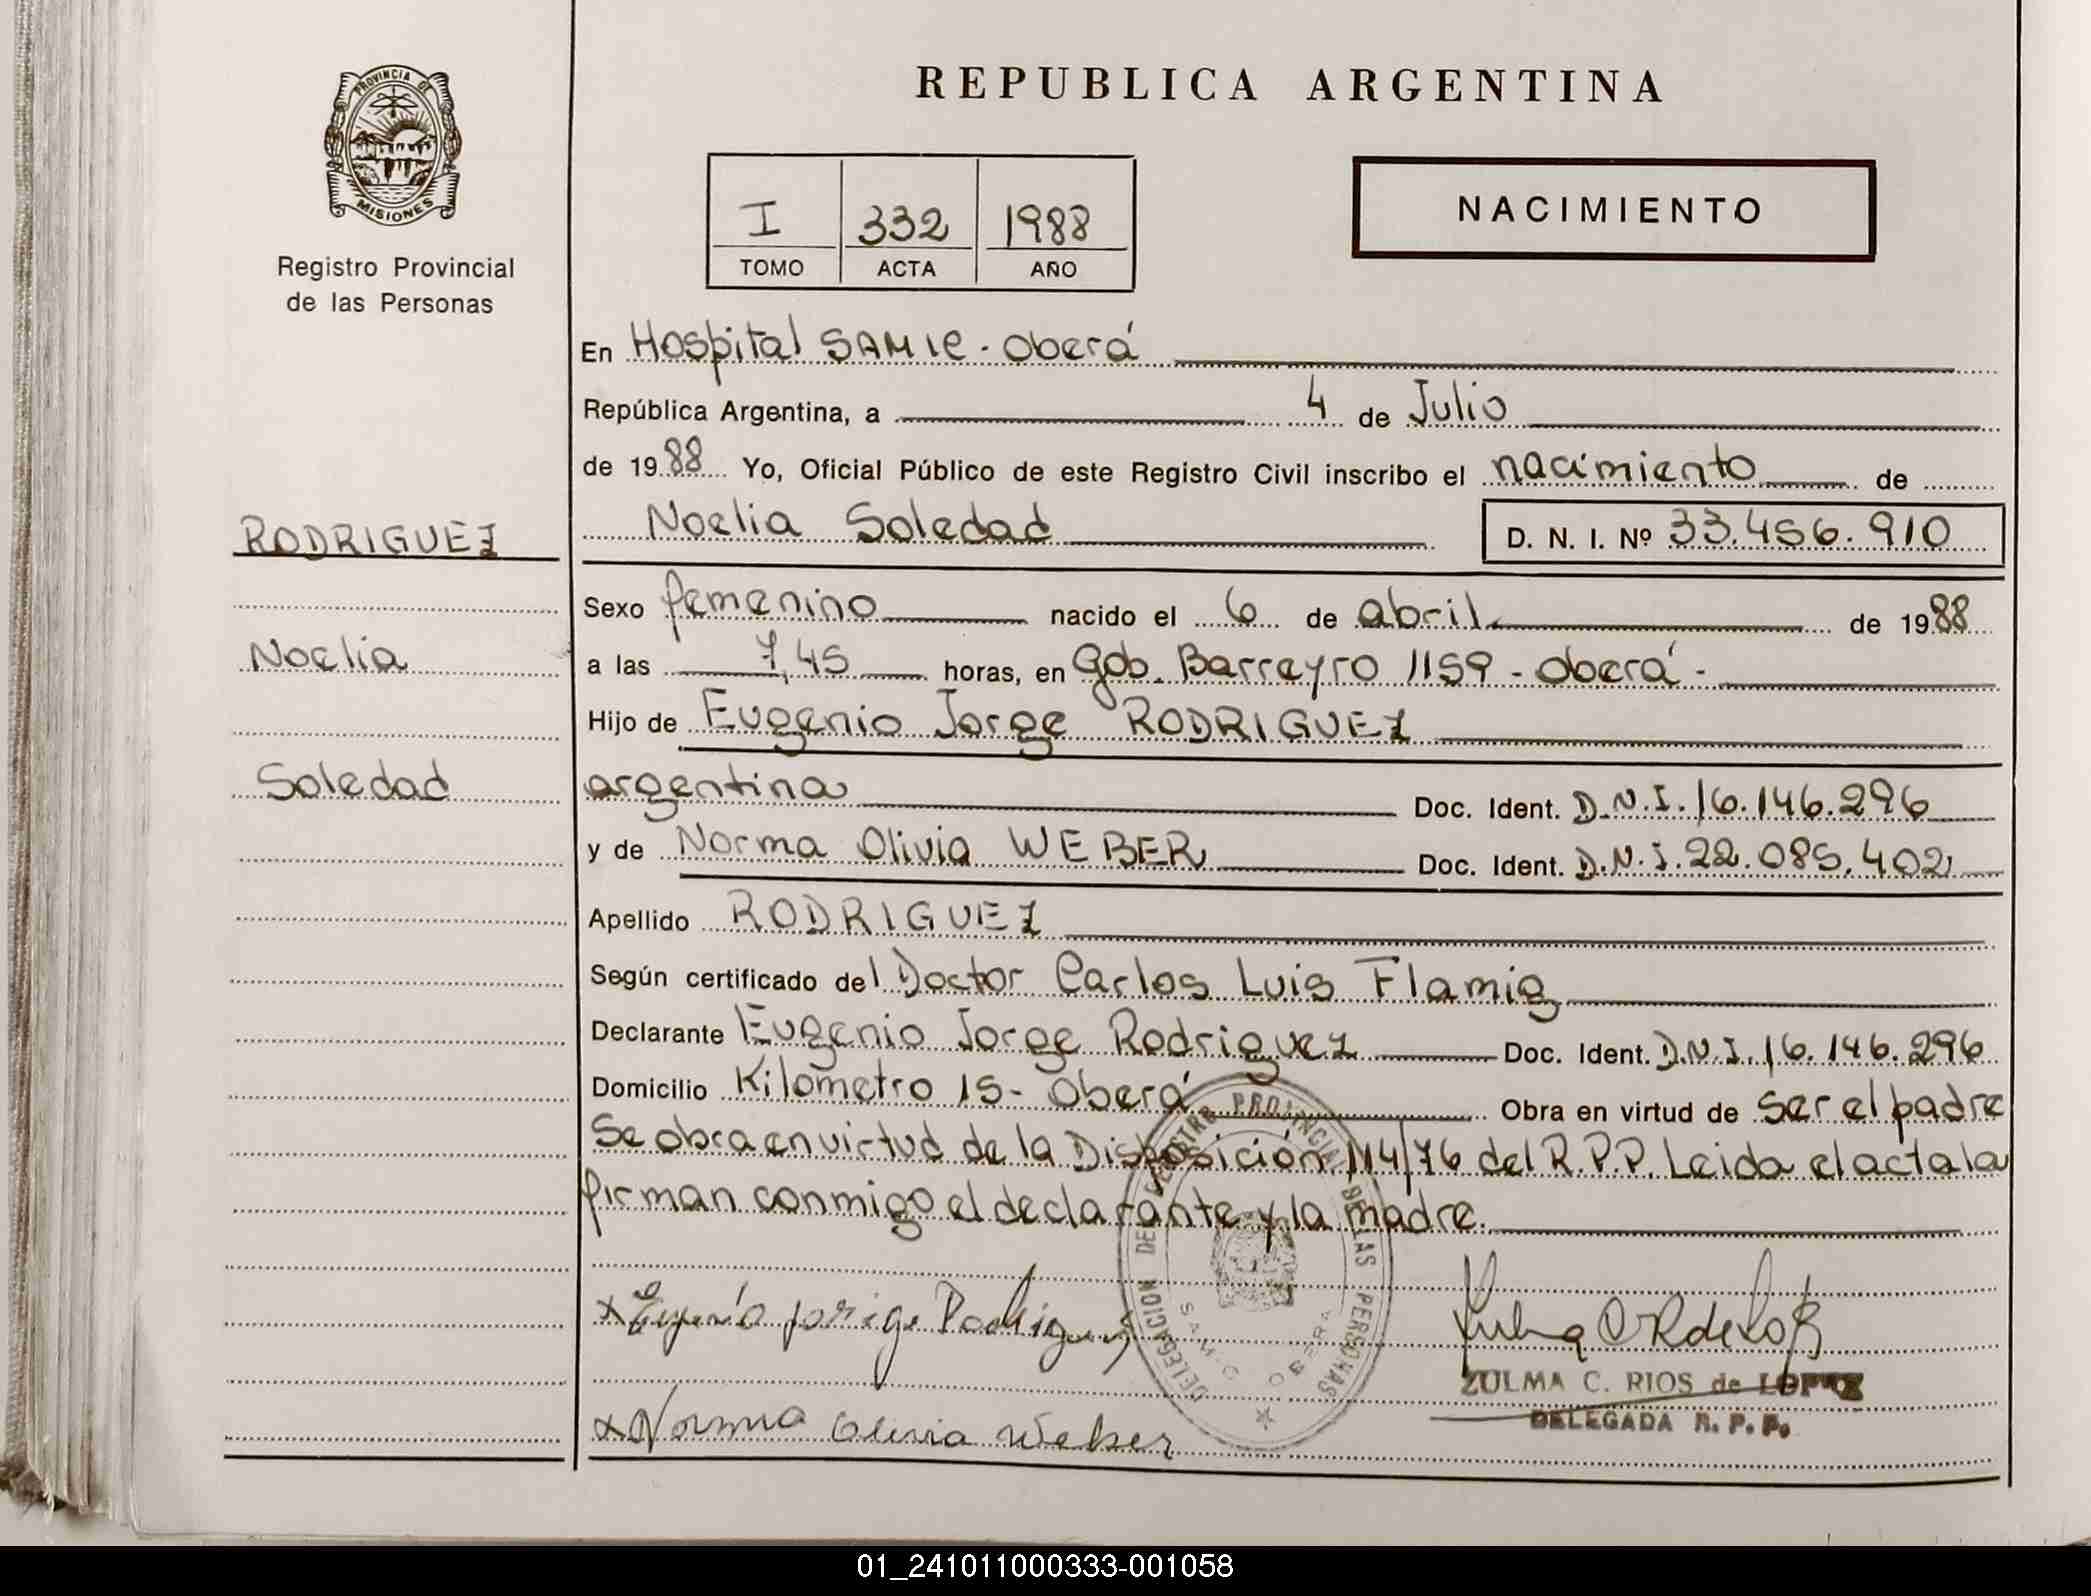 PROVINCIA DE
MISIONES
Registro Provincial
de las Personas
RODRIGUEZ
Noelia
Soledad
REPUBLICA ARGENTINA
I 332 1988
TOMO ACTA AÑO
NACIMIENTO
En Hospital SAMIC - Oberá
República Argentina, a 4 de Julio
de 1988 Yo, Oficial Público de este Registro Civil inscribo el nacimiento de
Noelia Soledad D. N. I. Nº 33.456.910
Sexo femenino nacido el 6 de abril de 1988
a las 7,45 horas, en Gob. Barreyro 1159 - Oberá -
Hijo de Eugenio Jorge RODRIGUEZ
argentina Doc. Ident. D.N.I. 16.146.296
y de Norma Olivia WEBER Doc. Ident. D.N.I. 22.085.402
Apellido RODRIGUEZ
Según certificado del Doctor Carlos Luis Flamig
Declarante Eugenio Jorge Rodriguez Doc. Ident. D.N.I. 16.146.296
Domicilio Kilometro 15 - Oberá Obra en virtud de ser el padre
Se obra en virtud de la Disposición 114/76 del R.P.P. Leida el acta la
firman conmigo el declarante y la madre.
DELEGACION DE REGISTRO PROVINCIAL DE LAS PERSONAS
SAMIC OBERA
x Eugenio Jorige Rodriguez
x Norma Olivia Weber
ZULMA C. RIOS de LOPEZ
DELEGADA R. P. P.
01_241011000333-001058